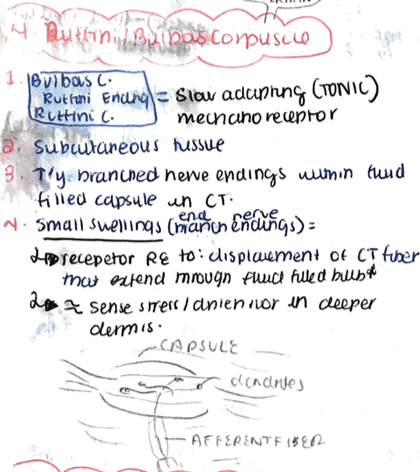 4 Ruffini/Bulbas Corpuscle
1. Bulbas C.
Ruffini Ending = Slow adapting (TONIC)
Ruffini C. mechanoreceptor
2. Subcutaneous tissue
3. T/y branched nerve endings within fluid
filled capsule in CT.
4. Small swellings (end nerve endings) =
1 receptor RE to: displacement of CT fiber
that extend through fluid filled bulb
2 sense stress/ in deeper
dermis.
CAPSULE
dendrites
AFFERENT FIBER